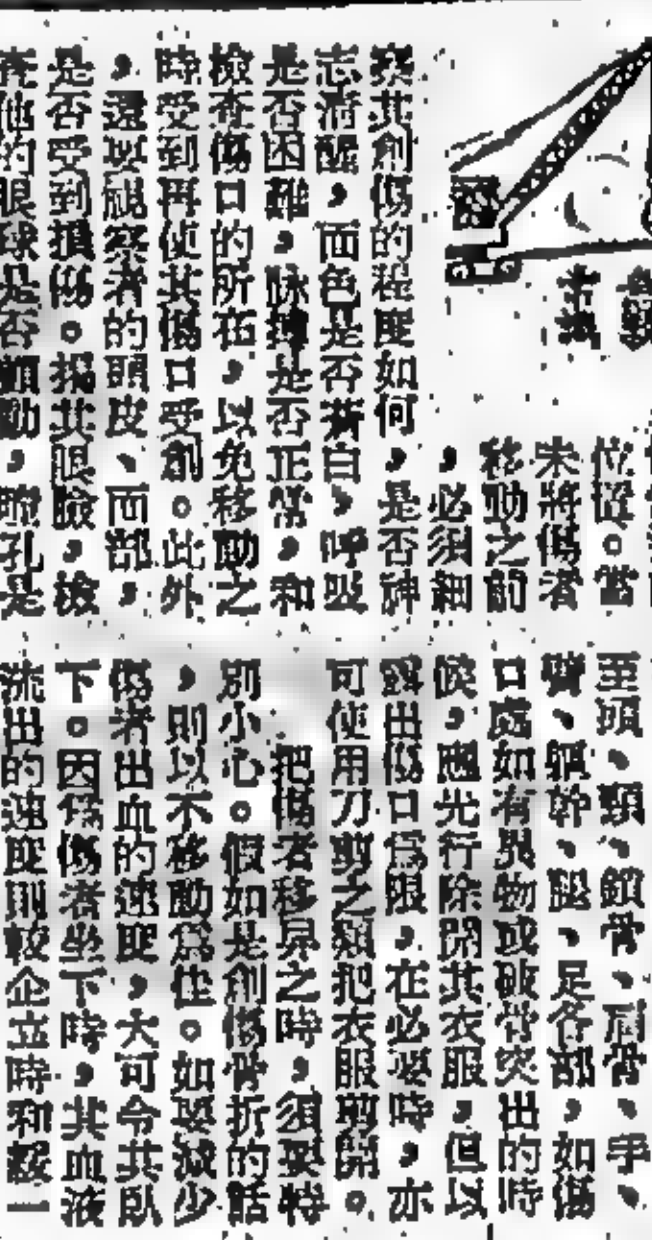 位置。當
未將傷者
移動之前
，必須細
察其創傷的程度如何，是否神
志清醒，面色是否蒼白，呼吸
是否困難，脉搏是否正常，和
檢查傷口的所在，以免移動之
時受到再使其傷口受創。此外
，還要視察者的頭皮、面部，
是否受到損傷。揭其眼瞼，檢
查他的眼球是否顫動，瞳孔是
至頭、頸、鎖骨、肩骨、手、
臂、軀幹、腿、足各部，如傷
口處如有異物或破骨突出的時
候，應先行除開其衣服，但以
露出傷口爲限，在必要時，亦
可使用刀剪之類把衣服剪開。
把傷者移舁之時，須要特
別小心。假如是創傷骨折的話
，則以不移動爲佳。如要減少
傷者出血的速度，大可令其臥
下。因爲傷者坐下時，其血液
流出的速度則較企立時和緩一